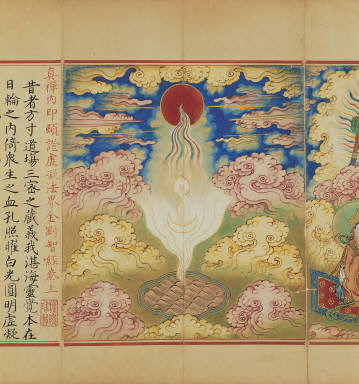 真禪內印頓證虛凝法界金剛智經卷上
昔者方寸道場三密之藏義我湛海靈覺本在
日輪之內倚衆生之血孔照曜白光圓明虛凝